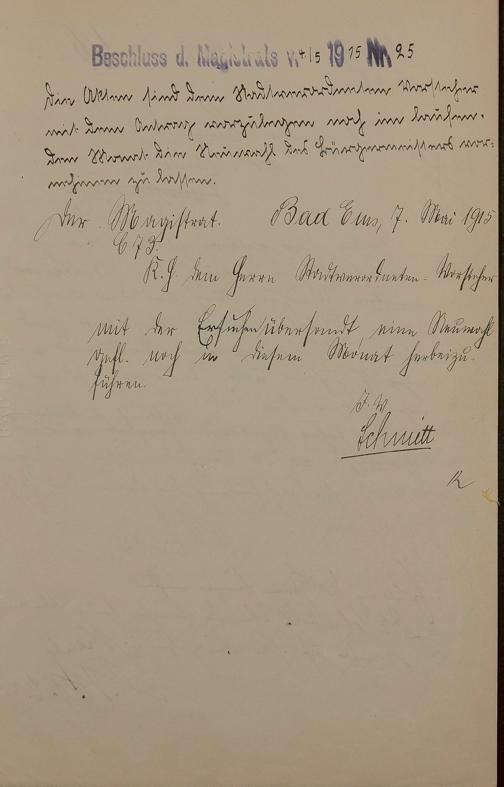 Beschluss d. Magistrats v. 4/5 1915 Nr. 25
Die Akten sind dem Stadtverordneten Vorsteher
mit dem Antrag vorzulegen noch im laufen-
den Monat die Neuwahl des Bürgermeisters vor-
nehmen zu lassen.
Der Magistrat. Bad Ems, 7. Mai 1915
C 73.
K. H. dem Herrn Stadtverordneten-Vorsteher
mit der Ersuchen übersandt eine Neuwahl
gefl. noch in diesem Monat herbeizu-
führen.
J. V.
Schmitt